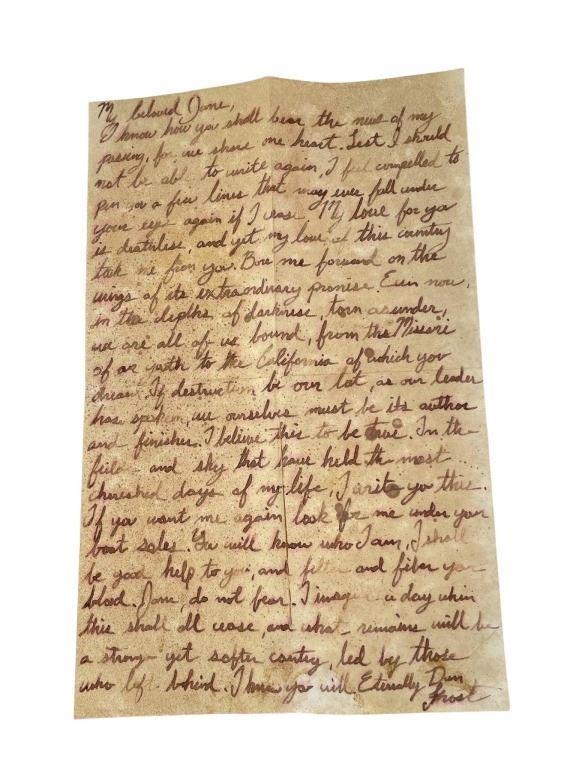 My beloved Jane,
I know how you shall bear the news of my
passing, for we share one heart. Lest I should
not be abl to write again, I feel compelled to
pen you a few lines that may ever fall under
your eye again if I cease. My love for you
is deathless, and yet my love of this country
took me from you. Bore me forward on the
wings of its extraordinary promise. Even now,
in the depths of darkness, torn asunder,
we are all of us bound, from the Missouri
of our youth to the California of which you
dream. If destruction be our lot, as our leader
has spoken, we ourselves must be its author
and finisher. I believe this to be true. In the
fields and sky that have held the most
cherished days of my life, I write you this.
If you want me again look for me under your
boot soles. You will know who I am, I shall
be good help to you, and filter and fiber your
blood. Jane, do not fear. I imagine a day when
this shall all cease, and what remains will be
a stronger yet softer country, led by those
who left behind. I know you will. Eternally
Frost